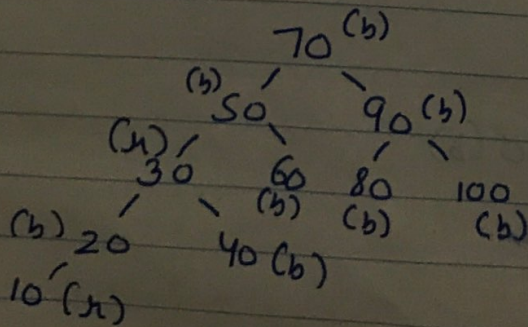 70 (b)
(b) 50 90 (b)
(r) 30 60 (b) 80 (b) 100 (b)
(b) 20 40 (b)
10 (r)